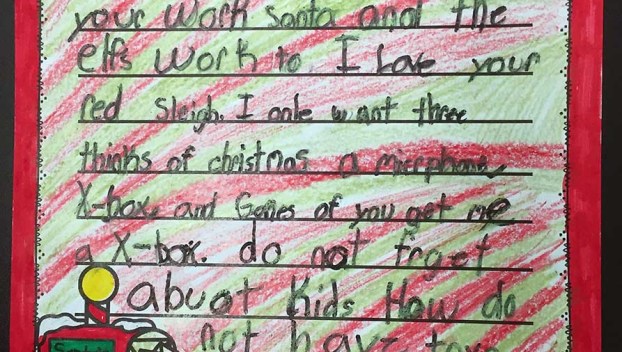 your work santa and the
elfs work to. I Love your
red sleigh. I onle want three
thinks of christmas a micrphone,
X-box, and Games of you get me
a X-box. do not frget
abuot kids How do
not have toy